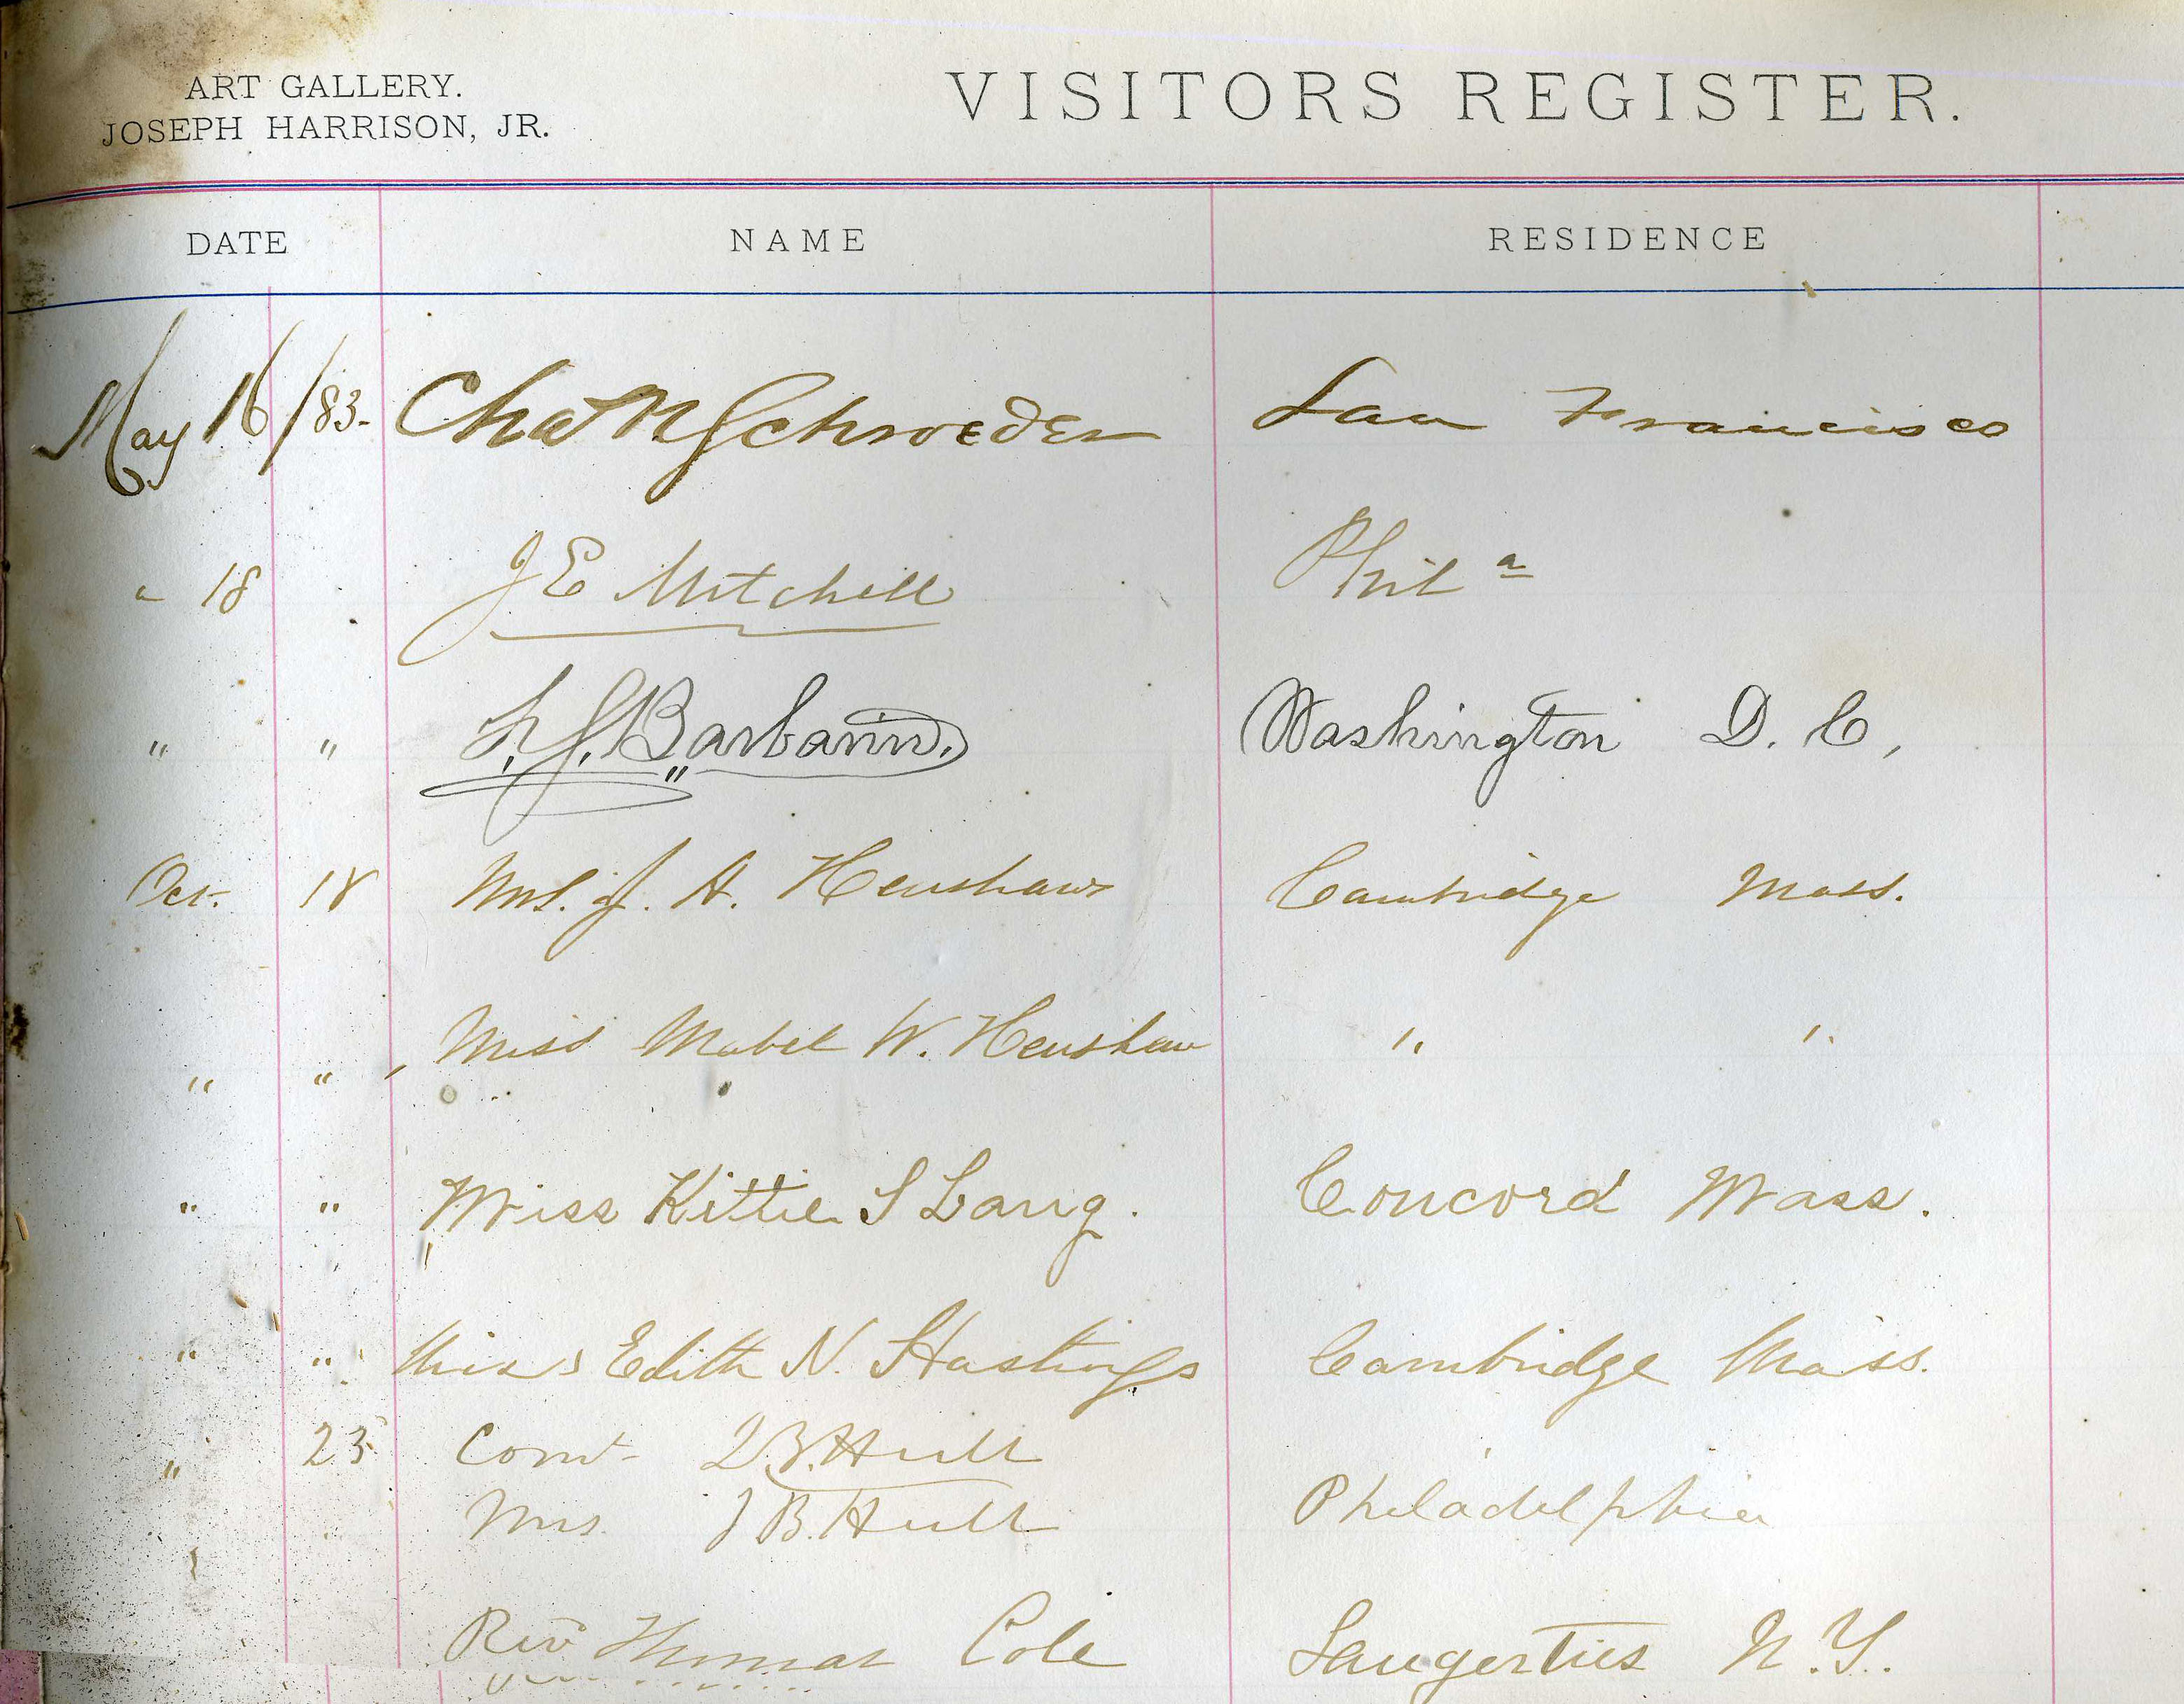 ART GALLERY.
JOSEPH HARRISON, JR.
VISITORS REGISTER.
DATE NAME RESIDENCE
May 16/83. Chas M Schroeder San Francisco
" 18 J E Mitchell Phila
" " Barbarin. Washington D. C,
Oct. 18 Mrs. J. A. Henshaw Cambridge Mass.
" " Miss Mabel W. Henshaw " "
" " Miss Kittie S Lang. Concord Mass.
" " Miss Edith N. Hastings Cambridge Mass.
" 23 Com J.B. Hull
Mrs J B. Hull Philadelphia
Rev Thomas Cole Saugerties N.Y.